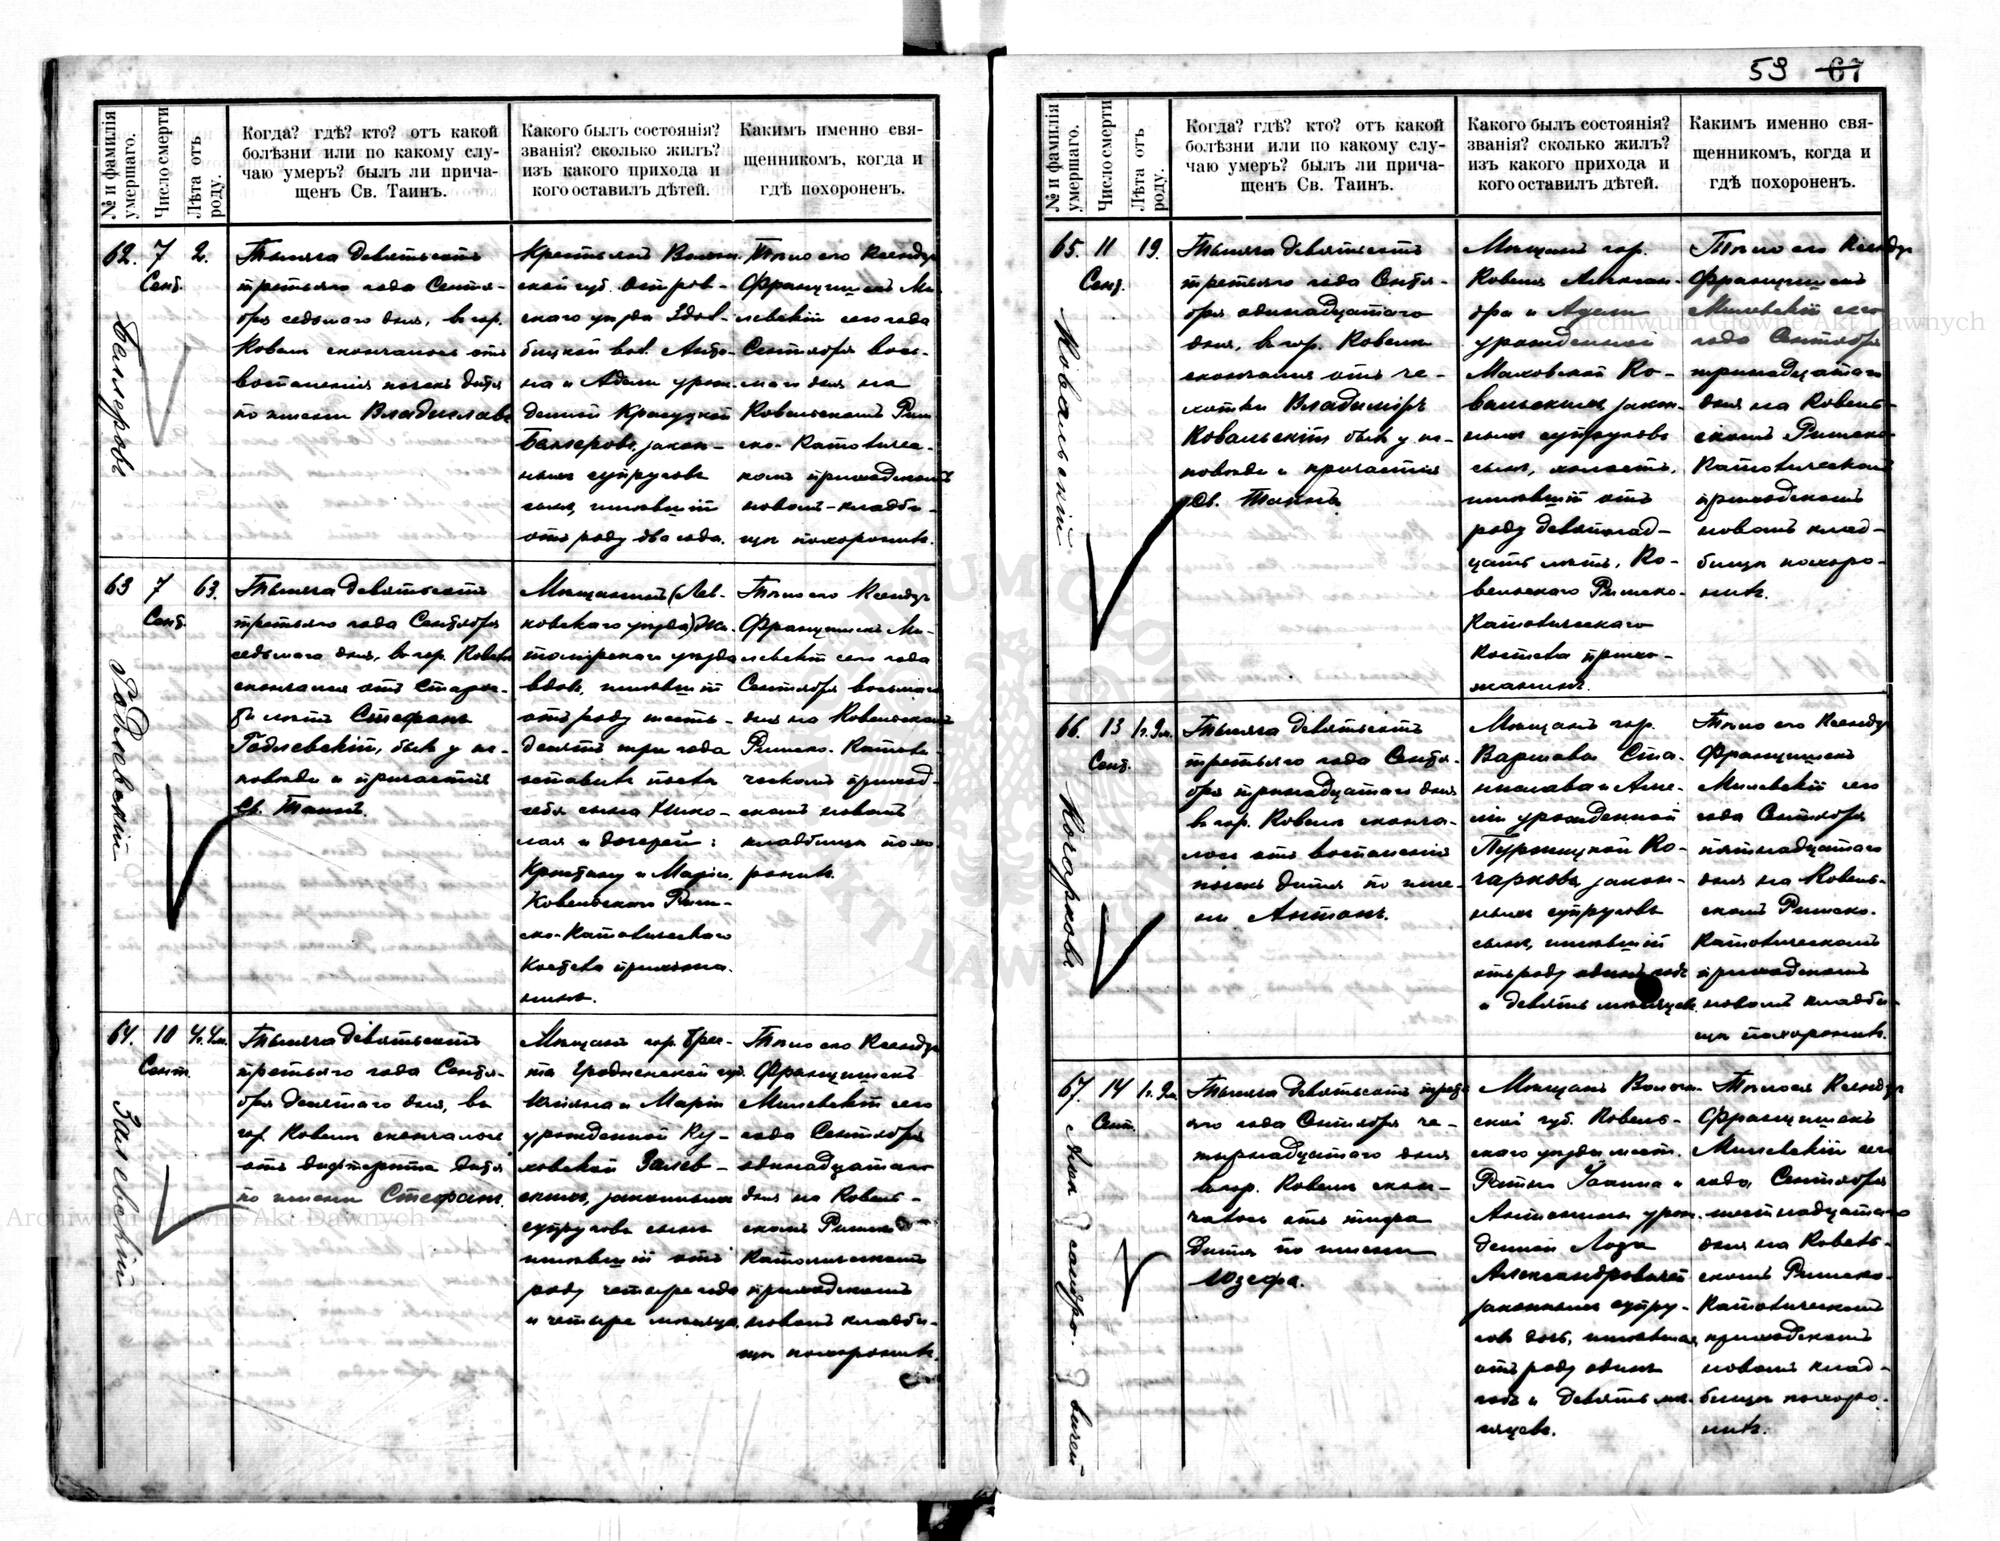 59 67
№ и фамилія умершаго.
Число смерти
Лѣта отъ роду.
Когда? гдѣ? кто? отъ какой
болѣзни или по какому слу-
чаю умеръ? былъ ли прича-
щенъ Св. Таинъ.
Какого былъ состоянія?
званія? сколько жилъ?
изъ какого прихода и
кого оставилъ дѣтей.
Какимъ именно свя-
щенникомъ, когда и
гдѣ похороненъ.
62.
7
Сент.
2.
Тысяча девятьсотъ
третьяго года Сентя-
бря седьмаго дня, въ гор.
Ковелѣ скончалось отъ
воспаленія почекъ дитя
по имени Владиславъ
Крестьянъ Волын-
ской губ. Острож-
скаго уѣзда
вол. Анто-
на и Адели урож-
денной
законн-
ныхъ супруговъ
сынъ, имѣвшій
отъ роду два года.
Тѣло его Ксендзъ
Францишекъ Ми-
левскій сего года
Сентября вось-
маго дня на
Ковельскомъ Рим-
ско-Католичес-
комъ приходскомъ
новомъ кладби-
щѣ похоронилъ.
63
7
Сент.
63.
Годлевскій
Тысяча девятьсотъ
третьяго года Сентября
седьмаго дня, въ гор. Ковелѣ
скончался отъ старос-
ти лѣтъ Стефанъ
Годлевскій, былъ у ис-
повѣди и причастія
Св. Таинъ.
Мѣщанинъ
Жи-
томірскаго уѣзда
вдов. имѣвшій
отъ роду шесть-
десятъ три года
оставилъ послѣ
себя сына Нико-
лая и дочерей:
Кристину и Марію,
Ковельскаго Рим-
ско-Католическаго
Костела прихожа-
нинъ.
Тѣло его Ксендзъ
Францишекъ Ми-
левскій сего года
Сентября восьмаго
дня на Ковельскомъ
Римско-Католи-
ческомъ приход-
скомъ новомъ
кладбищѣ похо-
ронилъ.
64.
10
Сент.
4г. 4м.
Залевскій
Тысяча девятьсотъ
третьяго года Сентя-
бря десятаго дня, въ
гор. Ковелѣ скончалось
отъ дифтерита дитя
по имени Стефанъ.
Мѣщанъ гор. Брес-
та Гродненской губ.
и Маріи
урожденной
Залев-
скихъ, законныхъ
супруговъ сынъ
имѣвшій отъ
роду четыре года
и четыре мѣсяца.
Тѣло его Ксендзъ
Францишекъ
Милевскій сего
года Сентября
одинадцатаго
дня на Ковель-
скомъ Римско
Католическомъ
приходскомъ
новомъ кладби-
щѣ похоронилъ.
№ и фамилія умершаго.
Число смерти
Лѣта отъ роду.
Когда? гдѣ? кто? отъ какой
болѣзни или по какому слу-
чаю умеръ? былъ ли прича-
щенъ Св. Таинъ.
Какого былъ состоянія?
званія? сколько жилъ?
изъ какого прихода и
кого оставилъ дѣтей.
Какимъ именно свя-
щенникомъ, когда и
гдѣ похороненъ.
65.
11
Сент.
19.
Ковальскій
Тысяча девятьсотъ
третьяго года Сентя-
бря одинадцатаго
дня, въ гор. Ковелѣ
скончался отъ ча-
хотки Владиміръ
Ковальскій былъ у ис-
повѣди и причастія
Св. Таинъ
Мѣщанъ гор.
Ковеля Алексан-
дра и Адели
урожденной
Маховской Ко-
вальскихъ, закон-
ныхъ супруговъ
сынъ, холостъ,
имѣвшій отъ
роду девятнад-
цать лѣтъ, Ко-
вельскаго Римско-
Католическаго
Костела прихо-
жанинъ.
Тѣло его Ксендзъ
Францишекъ
Милевскій сего
года Сентября
тринадцатаго
дня на Ковель-
скомъ Римско-
Католическомъ
приходскомъ
новомъ клад-
бищѣ похоро-
нилъ.
66.
13
Сент.
1г. 9м.
Тысяча девятьсотъ
третьяго года Сентя-
бря тринадцатаго дня
въ гор. Ковелѣ сконча-
лось отъ воспаленія
почекъ дитя по име-
ни Антонъ.
Мѣщанъ гор.
Варшавы Ста-
нислава и Аме-
ліи урожденной
Ко-
чарковъ, закон-
ныхъ супруговъ
сынъ, имѣвшій
отъ роду одинъ годъ
и девять мѣсяцевъ.
Тѣло его Ксендзъ
Францишекъ
Милевскій сего
года Сентября
пятнадцатаго
дня на Ковель-
скомъ Римско-
Католическомъ
приходскомъ
новомъ кладби-
щѣ похоронилъ.
67.
14
Сент.
1г. 9м.
Александровичъ
Тысяча девятьсотъ треть-
яго года Сентября че-
тырнадцатаго дня
въ гор. Ковелѣ скон-
чалось отъ тифа
дитя по имени
Юзефа.
Мѣщанъ Волын-
ской губ. Ковель-
скаго уѣзда мѣст.
и
Антонины урож-
денной
Александровичей
законныхъ супру-
говъ дочь, имѣвшая
отъ роду одинъ
годъ и девять мѣ-
сяцевъ.
Ксендзъ
Францишекъ
Милевскій сего
года Сентября
шестнадцатаго
дня на Ковель-
скомъ Римско-
Католическомъ
приходскомъ
новомъ клад-
бищѣ похоро-
нилъ.
Archiwum Główne Akt Dawnych
Archiwum Główne Akt Dawnych
ARCHIWUM GŁÓWNE AKT DAWNYCH